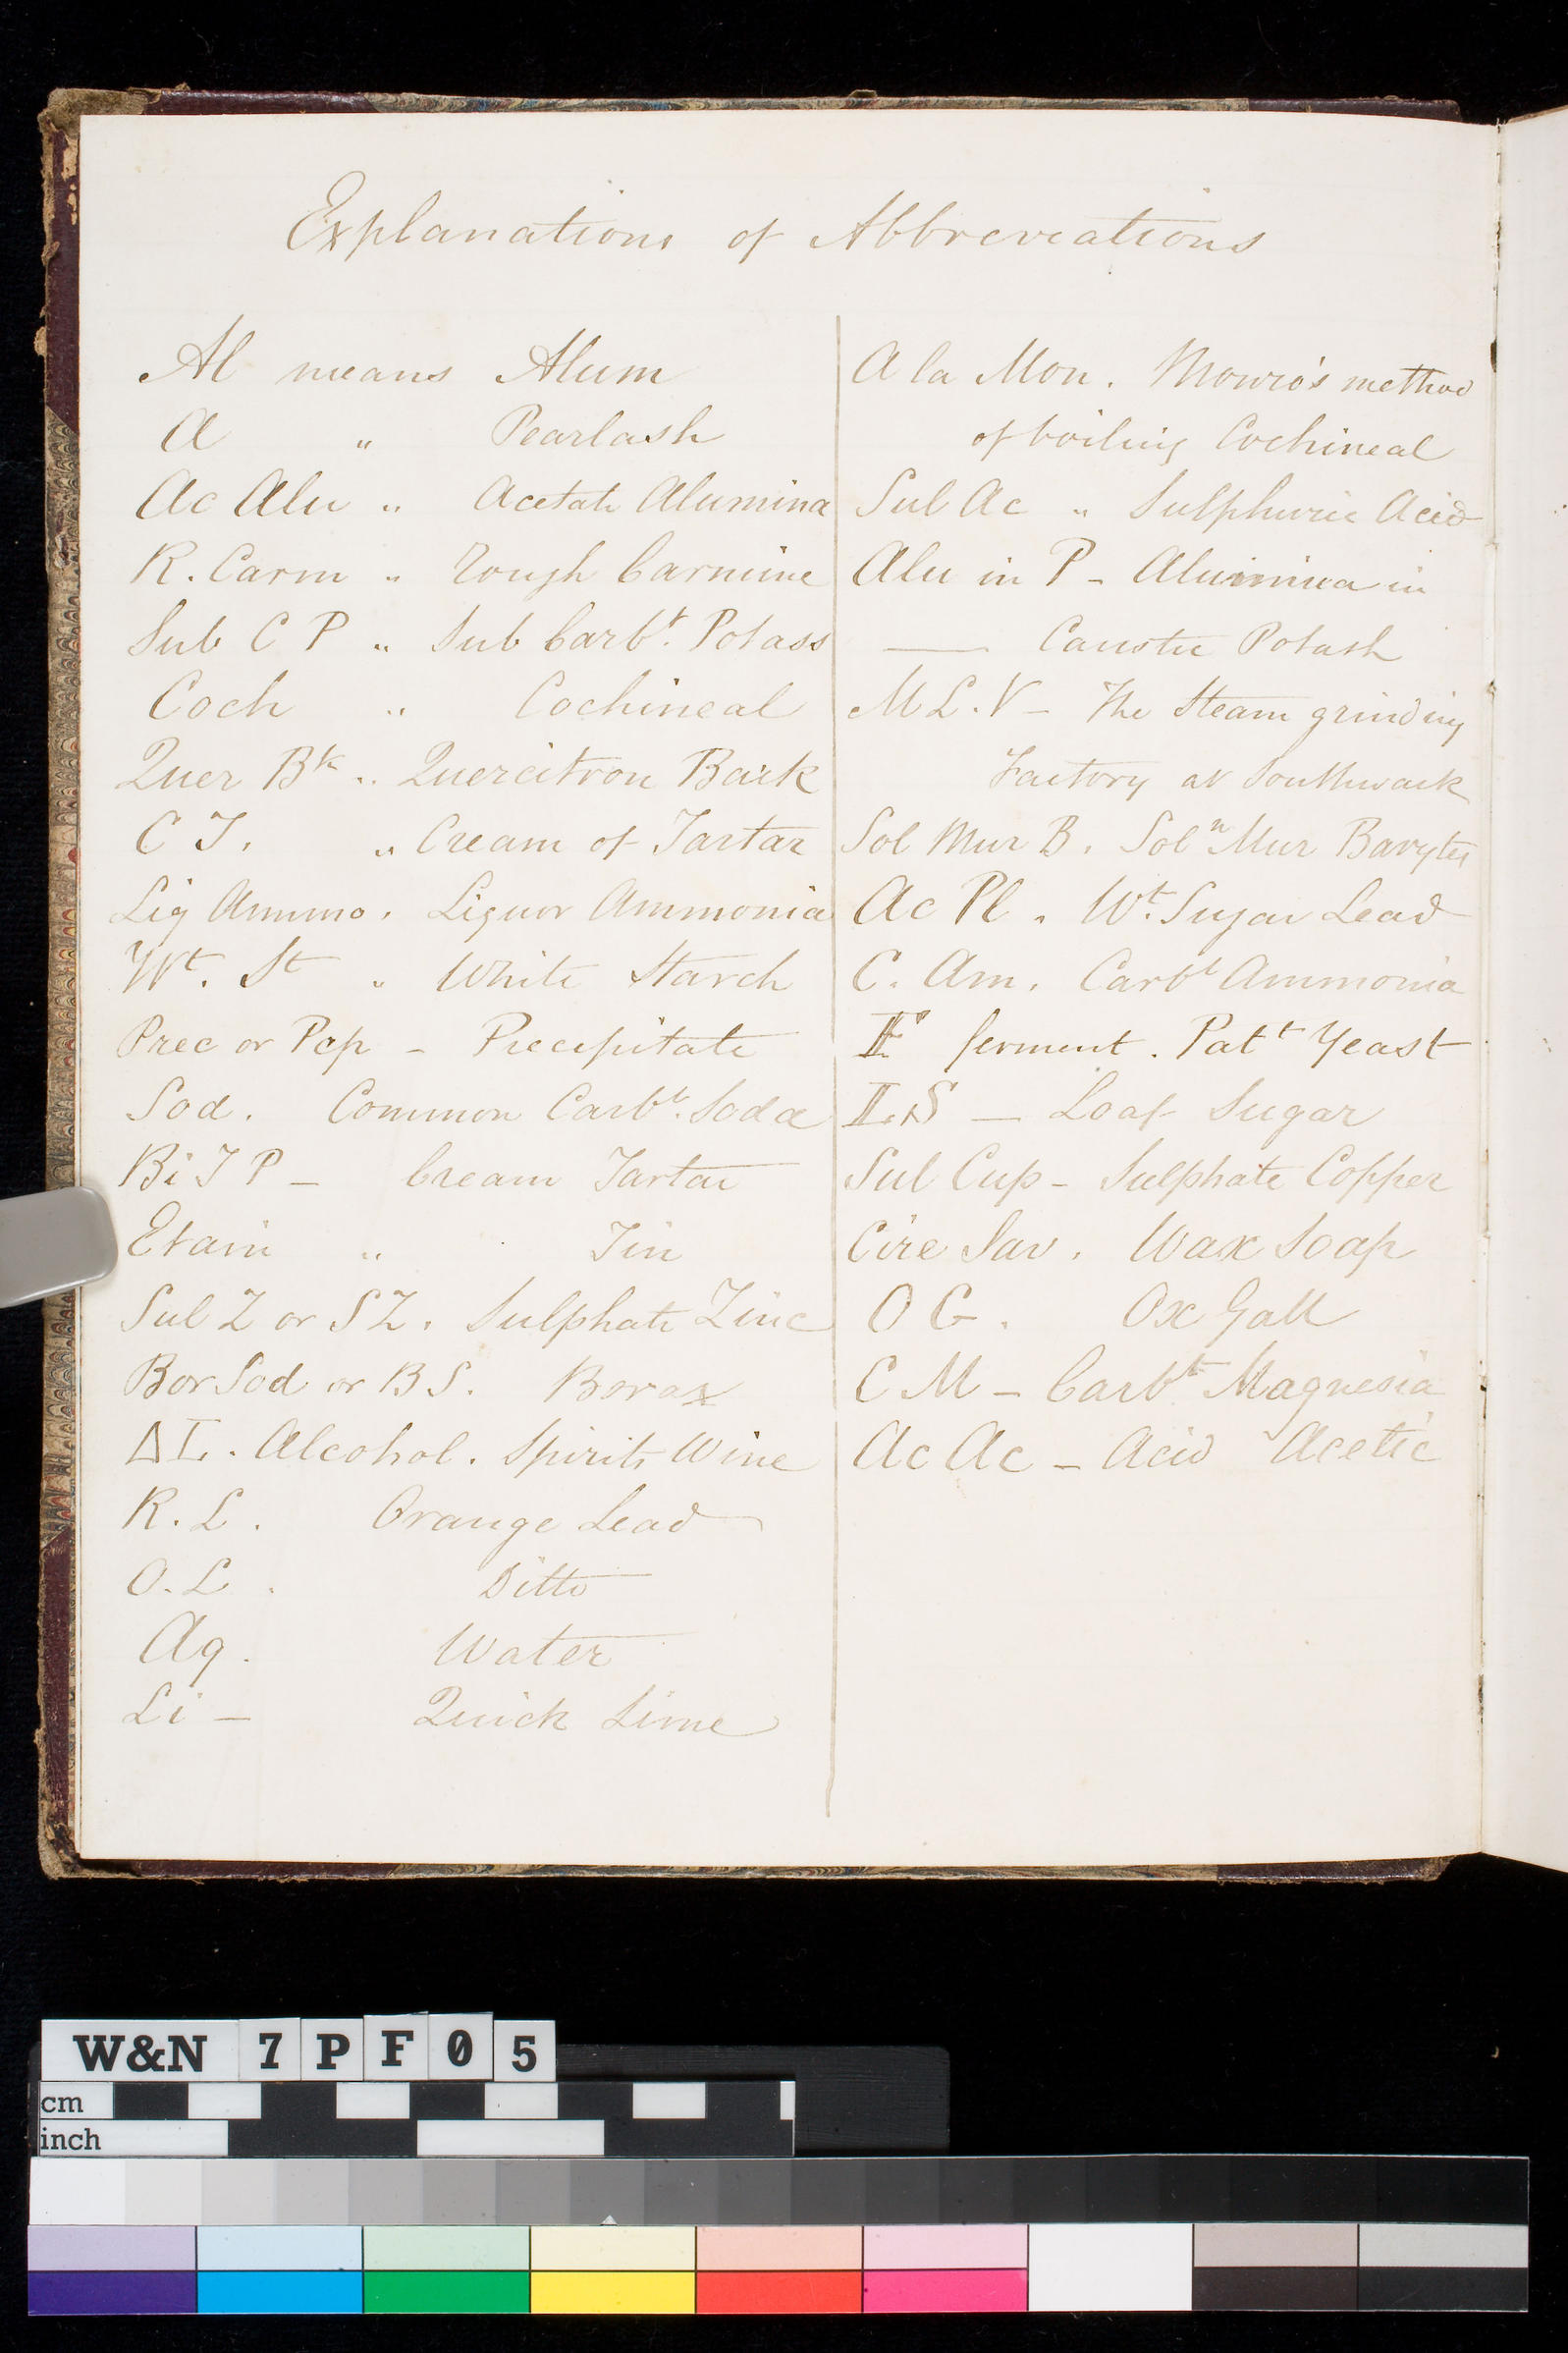 Explanations of Abbreveations
Al means Alum
A " Pearlash
Ac Alu " Acetate Alumina
R. Carm " Rough Carmine
Sub C P " Sub Carbt. Potass
Coch " Cochineal
Quer Bk " Quercitron Bark
C T. " Cream of Tartar
Liq Ammo. Liquor Ammonia
Wt. St " White Starch
Prec or Pcp - Precipitate
Sod. Common Carbt. Soda
Bi T P - Cream Tartar
Etain " Tin
Sul Z or S Z. Sulphate Zinc
Bor Sod or B S. Borax
AL. Alcohol. Spirits Wine
R. L. Orange Lead
O. L. Ditto
Aq. Water
Li - Quick Lime
A la Mon. method
of boiling Cochineal
Sul Ac " Sulphuric Acid
Alu in P - Alumina in
— Caustic Potash
M L. V - The Steam grinding
Factory at Southwark
Sol Mur B. Soln Mur Barytes
Ac Pl. Wt. Sugar Lead
C. Am. Carbt Ammonia
F ferment. Patt Yeast
L.S — Loaf Sugar
Sul Cup - Sulphate Copper
Cire Sav. Wax Soap
O G. Ox Gall
C M - Carbt Magnesia
Ac Ac - Acid Acetic
W&N 7PF05
cm
inch